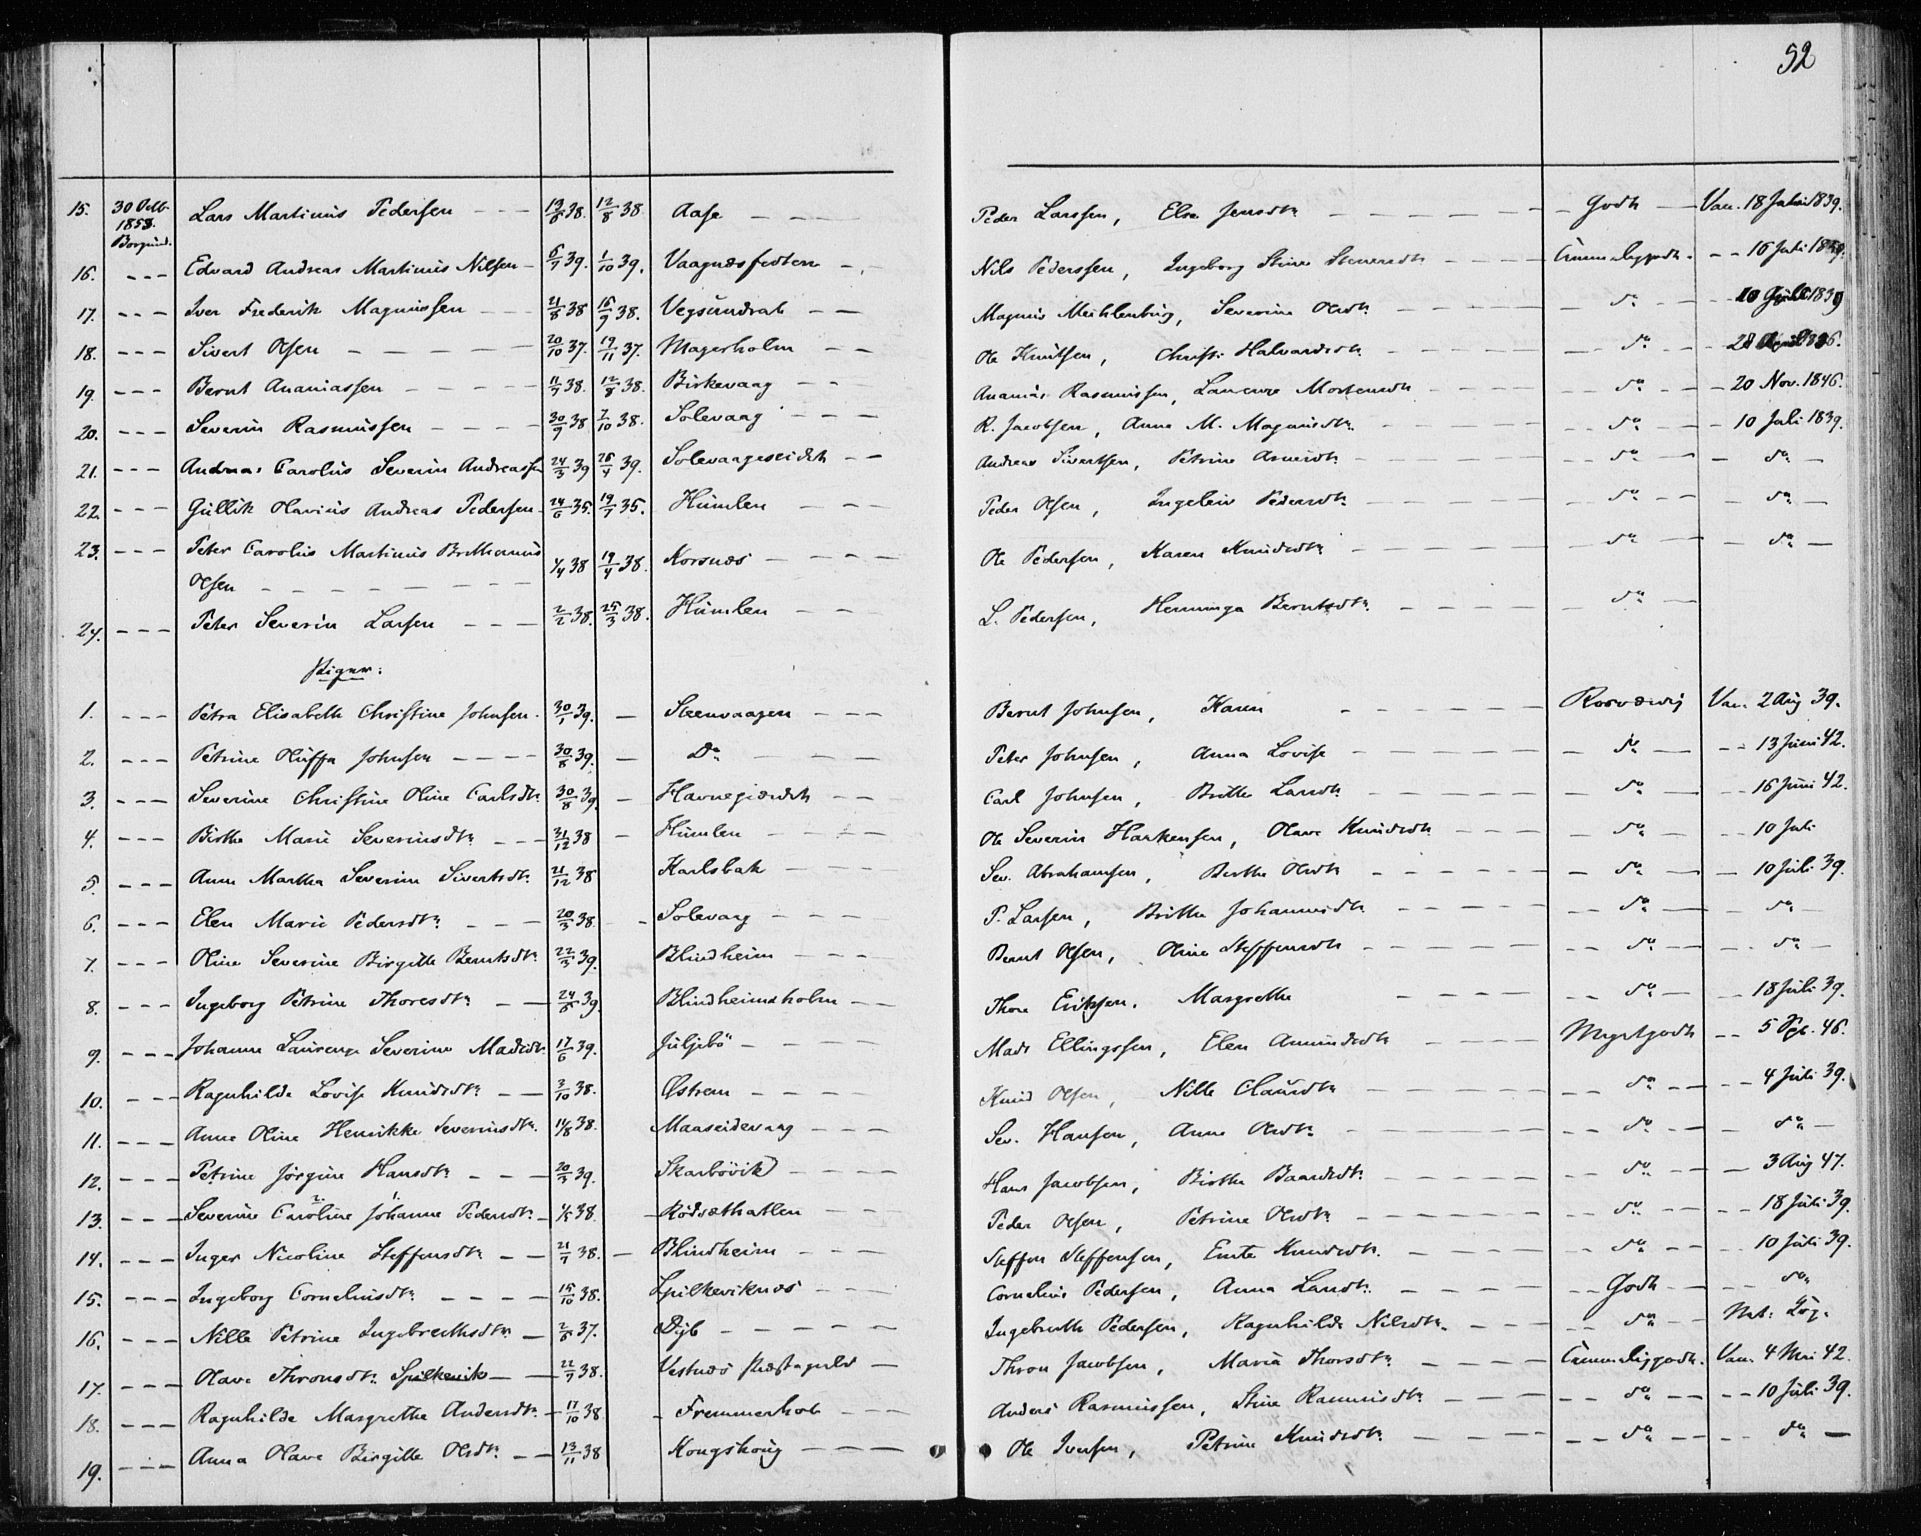 52
15. 30 Octb. 1853. Borgund. Lars Martinus Pedersen - - - 13/6 38. 12/8 38. Aase - - - Peder Larssen, Else Jensdtr - - - Godt - Vac. 18 Juli 1839.
16. - - - Edvard Andreas Martinus Nilsen - 6/7 39. 1/10 39. Vaagnæsfedten - - Nils Pederssen, Ingeborg Stine - - - - - 16 Juli 1839.
17. - - - Iver Frederik Magnussen - - - 21/8 38 16/9 38. Vegsundvab - - Magnus Meihlenburg, Severine Olsdtr - - - do - - 1839
18. - - - Sivert Olsen - - - - 20/10 37. 19/11 37. Magerholm - - Ole Knutsen, Christi Halvardsdtr - - - do - - 28
19. - - - Bernt Ananiassen - - - - 11/7 38. 12/8 38. Birkevaag - - Ananias Rasmussen, Laurenze Mortensdtr - - - do - - 20 Nov. 1846.
20. - - - Severin Rasmussen - - - - 30/9 38 7/10 38. Solevaag - - - R. Jacobsen, Anne M. Magnusdtr. - - - do - - 10 Juli 1839.
21. - - - Andreas Carolus Severin Andreassen 24/3 39 28/4 39. Solevaagseidet - - Andreas Sivertsen, Petrine Arnesdtr - - - do - - do -
22. - - - Gullik Olavius Andreas Pedersen - 24/6 35. 19/7 35. Humlen - - - Peder Olsen, Ingeleiv Pedersdtr - - - do - - do -
23. - - - Peter Carolus Martinus Bertheanus
Olsen - - - - 1/4 38 19/4 38. Korsnæs - - - Ole Pedersen, Karen Knudsdtr - - - do - - do -
24. - - - Peter Severin Larsen - - - 2/2 38. 25/3 38. Humlen - - - L. Pedersen, Hemminga Berntsdtr. - - - do -
Piger:
1. - - - Petra Elisabeth Christine Johnsen. 30/1 39. - Steenvaagen - - - Bernt Johnsen, Karen - - - Vac. 2 Aug 39.
2. - - - Petrine Oluffa Johnsen - - - - 30/8 39. - Do - - - Peter Johnsen, Anna Lovise - - - do - - 13 Juni 42.
3. - - - Severine Christine Oline Carlsdtr. 30/8 39. - Havnegjerdet - - Carl Johnsen, Britte Larsdtr - - - do - - 16 Juni 42.
4. - - - Birthe Marie Severinsdtr. - - - 31/12 38 - Humlen - - - Ole Severin Haakensen, Olave Knudsdtr - - - do - - 10 Juli
5. - - - Anne Martha Severine Sivertsdtr. 21/12 38 Karlsbak - - - Sev. Abrahamsen, Berthe Olsdtr - - - do - - 10 Juli 39.
6. - - - Elen Marie Pedersdtr. - - - 20/3 38. - Solevaag - - - P. Larsen, Brithe Johannesdtr - - - do - - do -
7. - - - Oline Severine Birgitte Berntsdtr. 22/3 39. Blindheim - - - Bernt Olsen, Oline Steffensdtr - - - do - - do -
8. - - - Ingeborg Petrine Thoresdtr - - 24/5 39. Blindheimsholm - - Thore Eriksen. Margrethe - - - do - - 18 Juli 39.
9. - - - Johanne Laurenze Severine Madsdtr. 17/6 39. Juljebö - - - Mads Ellingssen, Elen Amundsdtr - - - Megetgodt - - 5 46.
10. - - - Ragnhilde Lovise Knudsdtr. - - 3/10 38. Østrem - - - - Knud Olsen, Nille Clausdtr - - - do - - 4 Juli 39.
11. - - - Anne Oline Henrikke Severinsdtr. 11/8 38. Maaseidevaag - - - Sev. Hansen, Anne Olsdtr. - - - do - - do -
12. - - - Petrine Jörgine Hansdtr - - - 20/3 39. Skarbövik - - - - Hans Jacobsen, Birthe Baardsdtr. - - - do - - 3 Aug 47.
13. - - - Severine 2. Caroline 1. Johanne Pedersdtr. - 1/5 38. - Rödsæthatlen - - - Peder Olsen, Petrine Olsdtr - - - do - - 18 Juli 39.
14. - - - Inger Nicoline Steffensdtr - - 21/7 38. - Blindheim - - - Steffen Steffensen, Ente Knudsdtr. - - - do - - 10 Juli 39.
15. - - - Ingeborg Corneliusdtr. - - - - 15/10 38. Spilkeviknæs - - - Cornelius Pedersen, Anna Larsdtr. - - - Godt - - do
16. - - - Nille Petrine Ingebrethsdtr. - 2/6 37. Dyb - - - - - Ingebreth Pedersen, Ragnhilde Nilsdtr. - - - do -
17. - - - Olave Thronsdtr. Spilkevik - - 22/7 38. Vestnæs Præstegield - Thron Jacobsen, Maria Thorsdtr. - - - Vac. 4 Mai 42.
18. - - - Ragnhilde Margrethe Andersdtr. - 11/10 38 - Fremmerhob - - - Anders Rasmussen, Stine Rasmusdtr. - - - do - - 10 Juli 39.
19. - - - Anna Olave Birgitte Olsdtr. - - 13/11 38 Kongshoug - - - Ole Iversen, Petrine Knudsdtr. - - - do - - do -